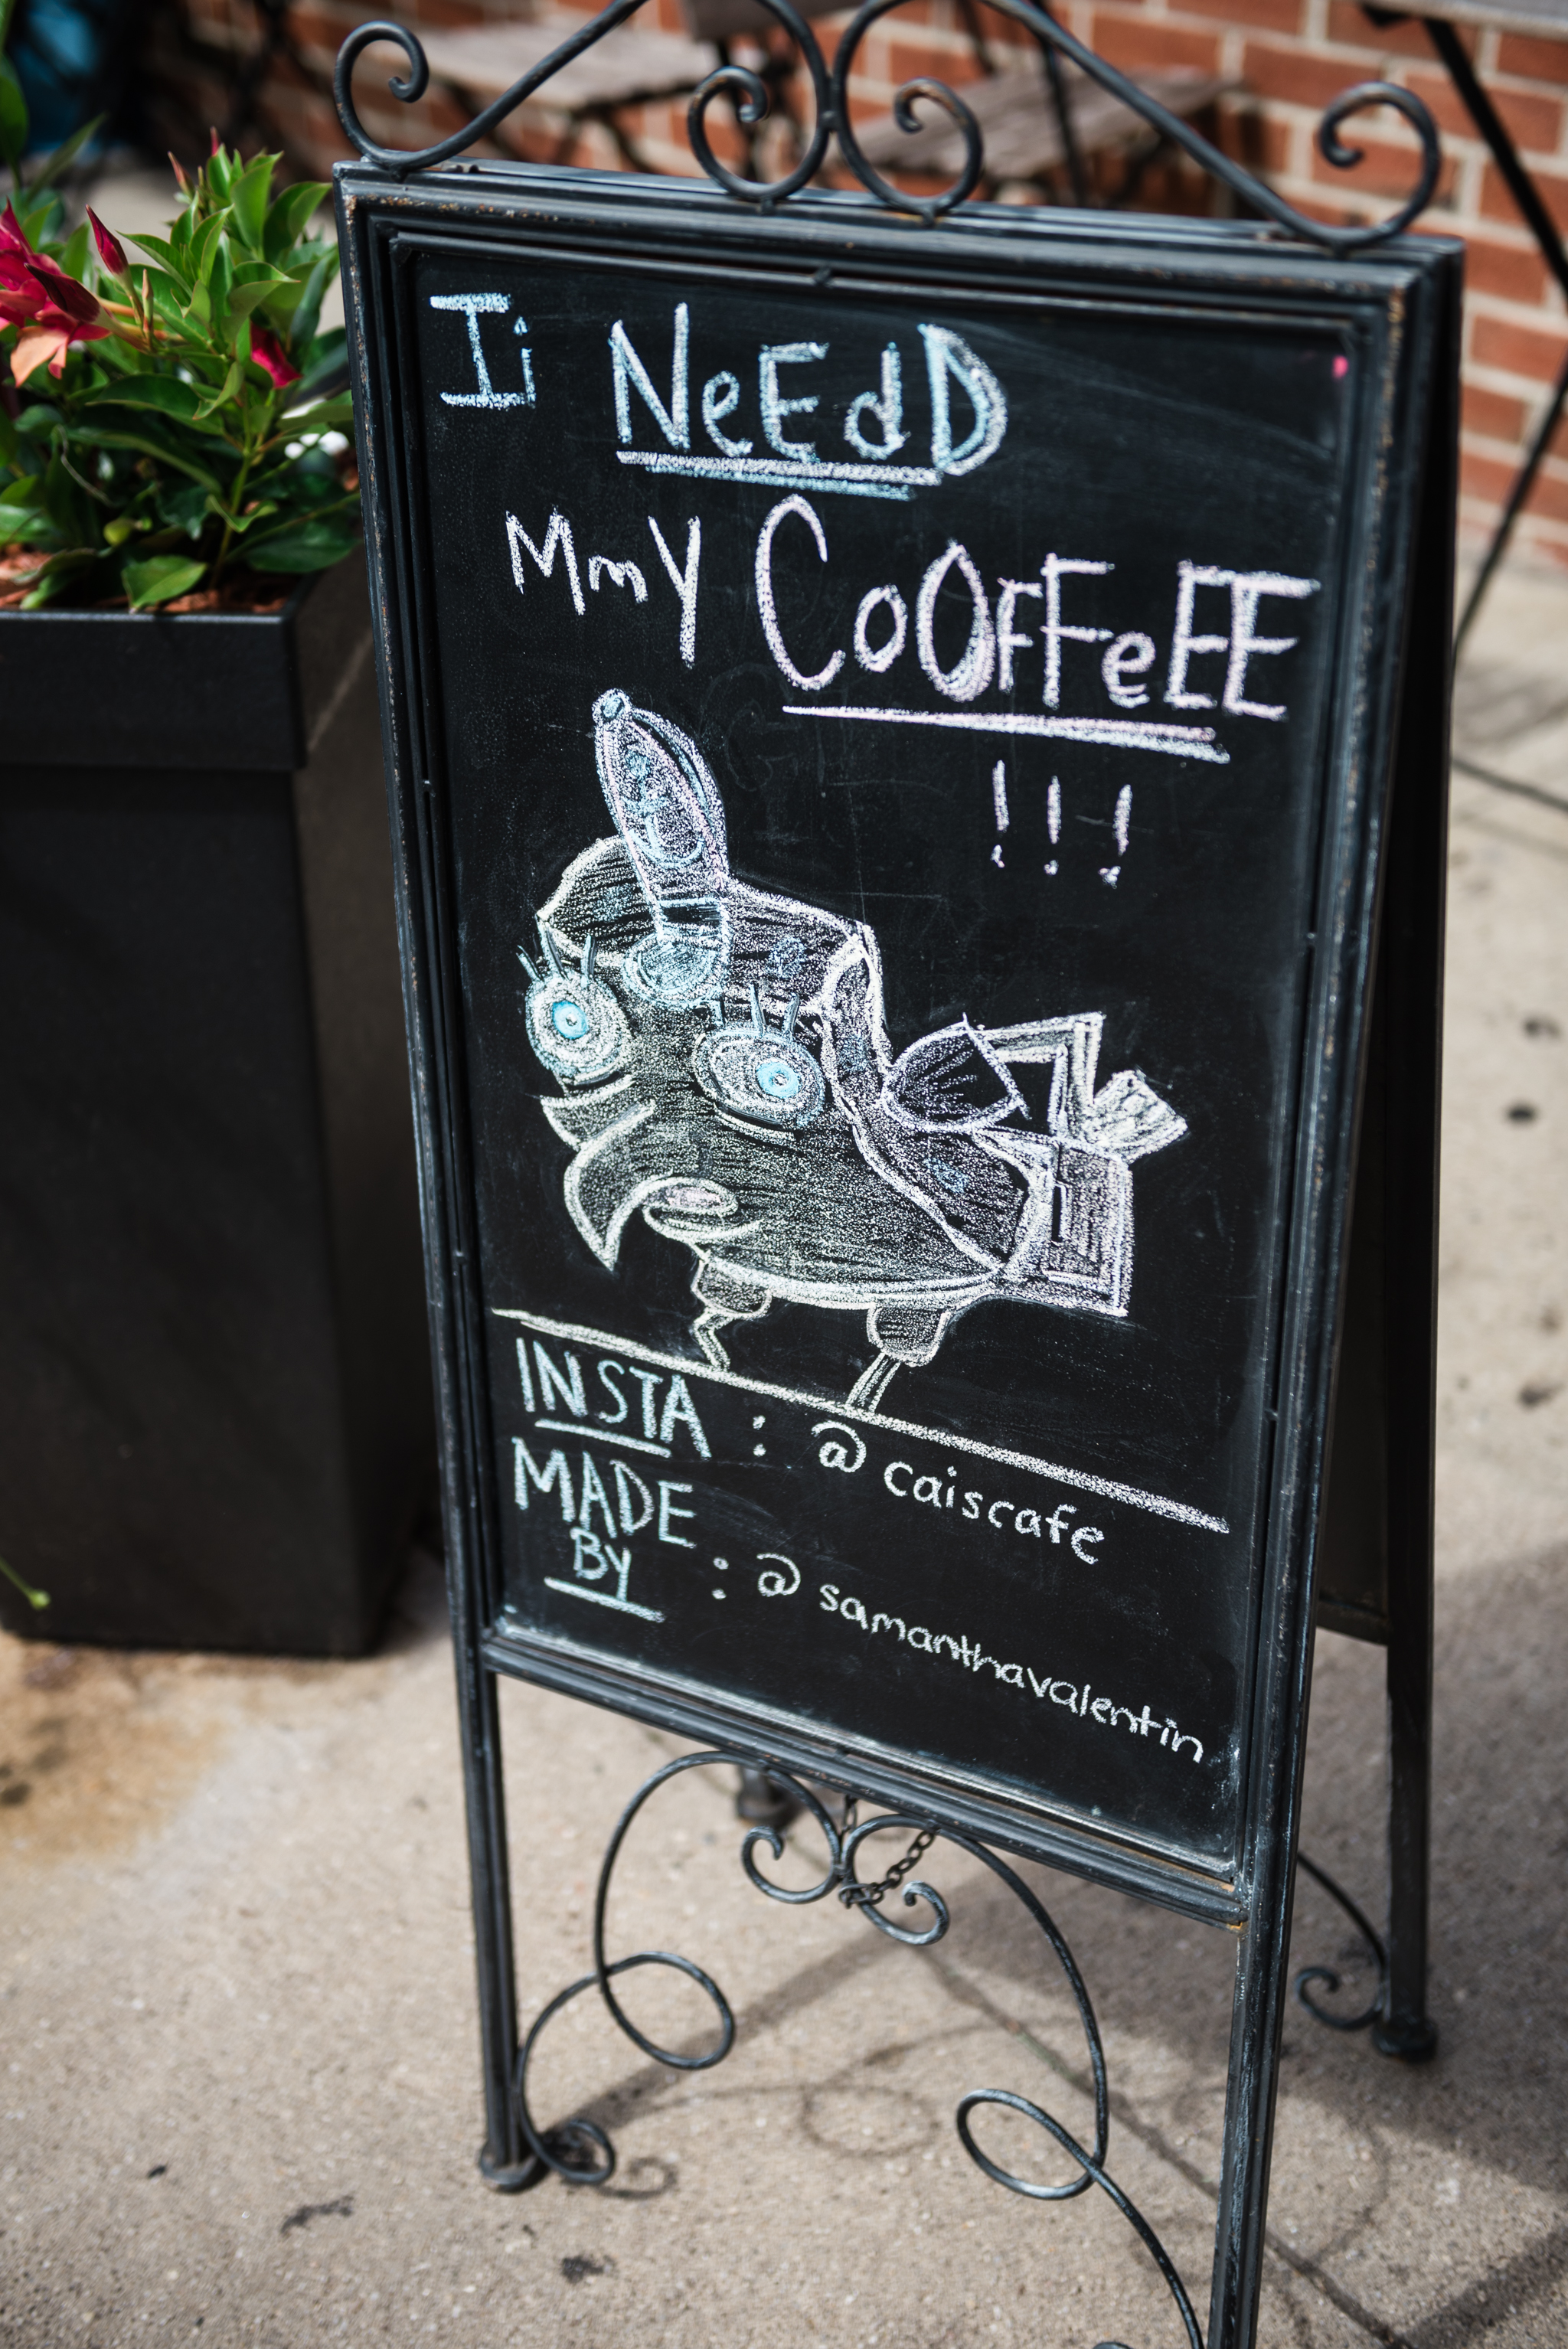 Ii NeEdD
MmY CoOfFeEE
!!!
INSTA : @ caiscafe
MADE
BY : @ samanthavalentin